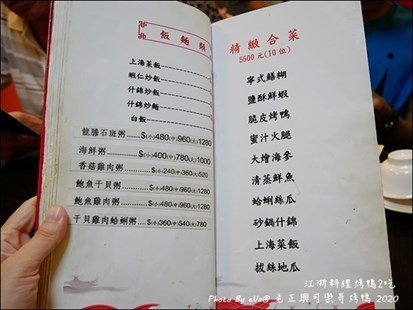 飯麵類
上海菜飯
蝦仁炒飯
什錦炒飯
什錦炒麵
白飯
龍膽石斑粥 $(小)480(中)960(大)1280
海鮮粥 $(小)400(中)780(大)1000
香菇雞肉粥 $(小)240(中)360(大)520
鮑魚干貝粥 $(小)480(中)960(大)1280
鮑魚雞粥 $(小)480(中)960(大)1280
干貝雞肉蛤蜊粥 $(小)360(中)540(大)780
精緻合菜
5500元(10位)
寧式鱔糊
鹽酥鮮蝦
脆皮烤鴨
蜜汁火腿
大燴海參
清蒸鮮魚
蛤蜊絲瓜
砂鍋什錦
上海菜飯
拔絲地瓜
江浙料理烤鴨2吃
Photo By eVa@ 老正興可樂哥烤鴨 2020